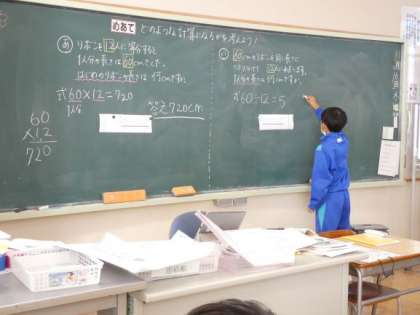 めあて どのような計算になるかを考えよう！
あ リボンを12人に等分すると
1人分の長さは60cmでした。
はじめのリボンの長さは何cmですか。
式60×12=720
1人分
答え720cm
60
×12
720
い 60cmのリボンを同じ長さに
式60÷12=5